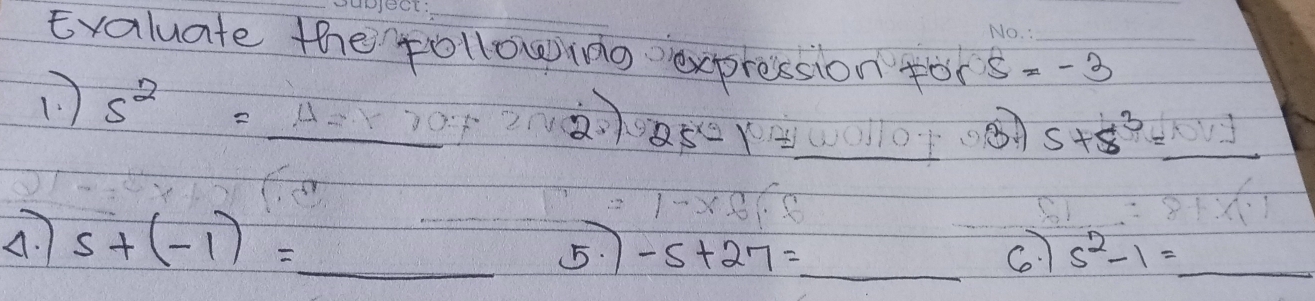 Subject:
No.:
Evaluate the following expression for s = -3
1.) s² = ____ 2.) 2s - 1 = ____ 3.) s + s³ = ____
4.) s + (-1) = ____ 5.) -s + 27 = ____ 6.) s² - 1 = ____